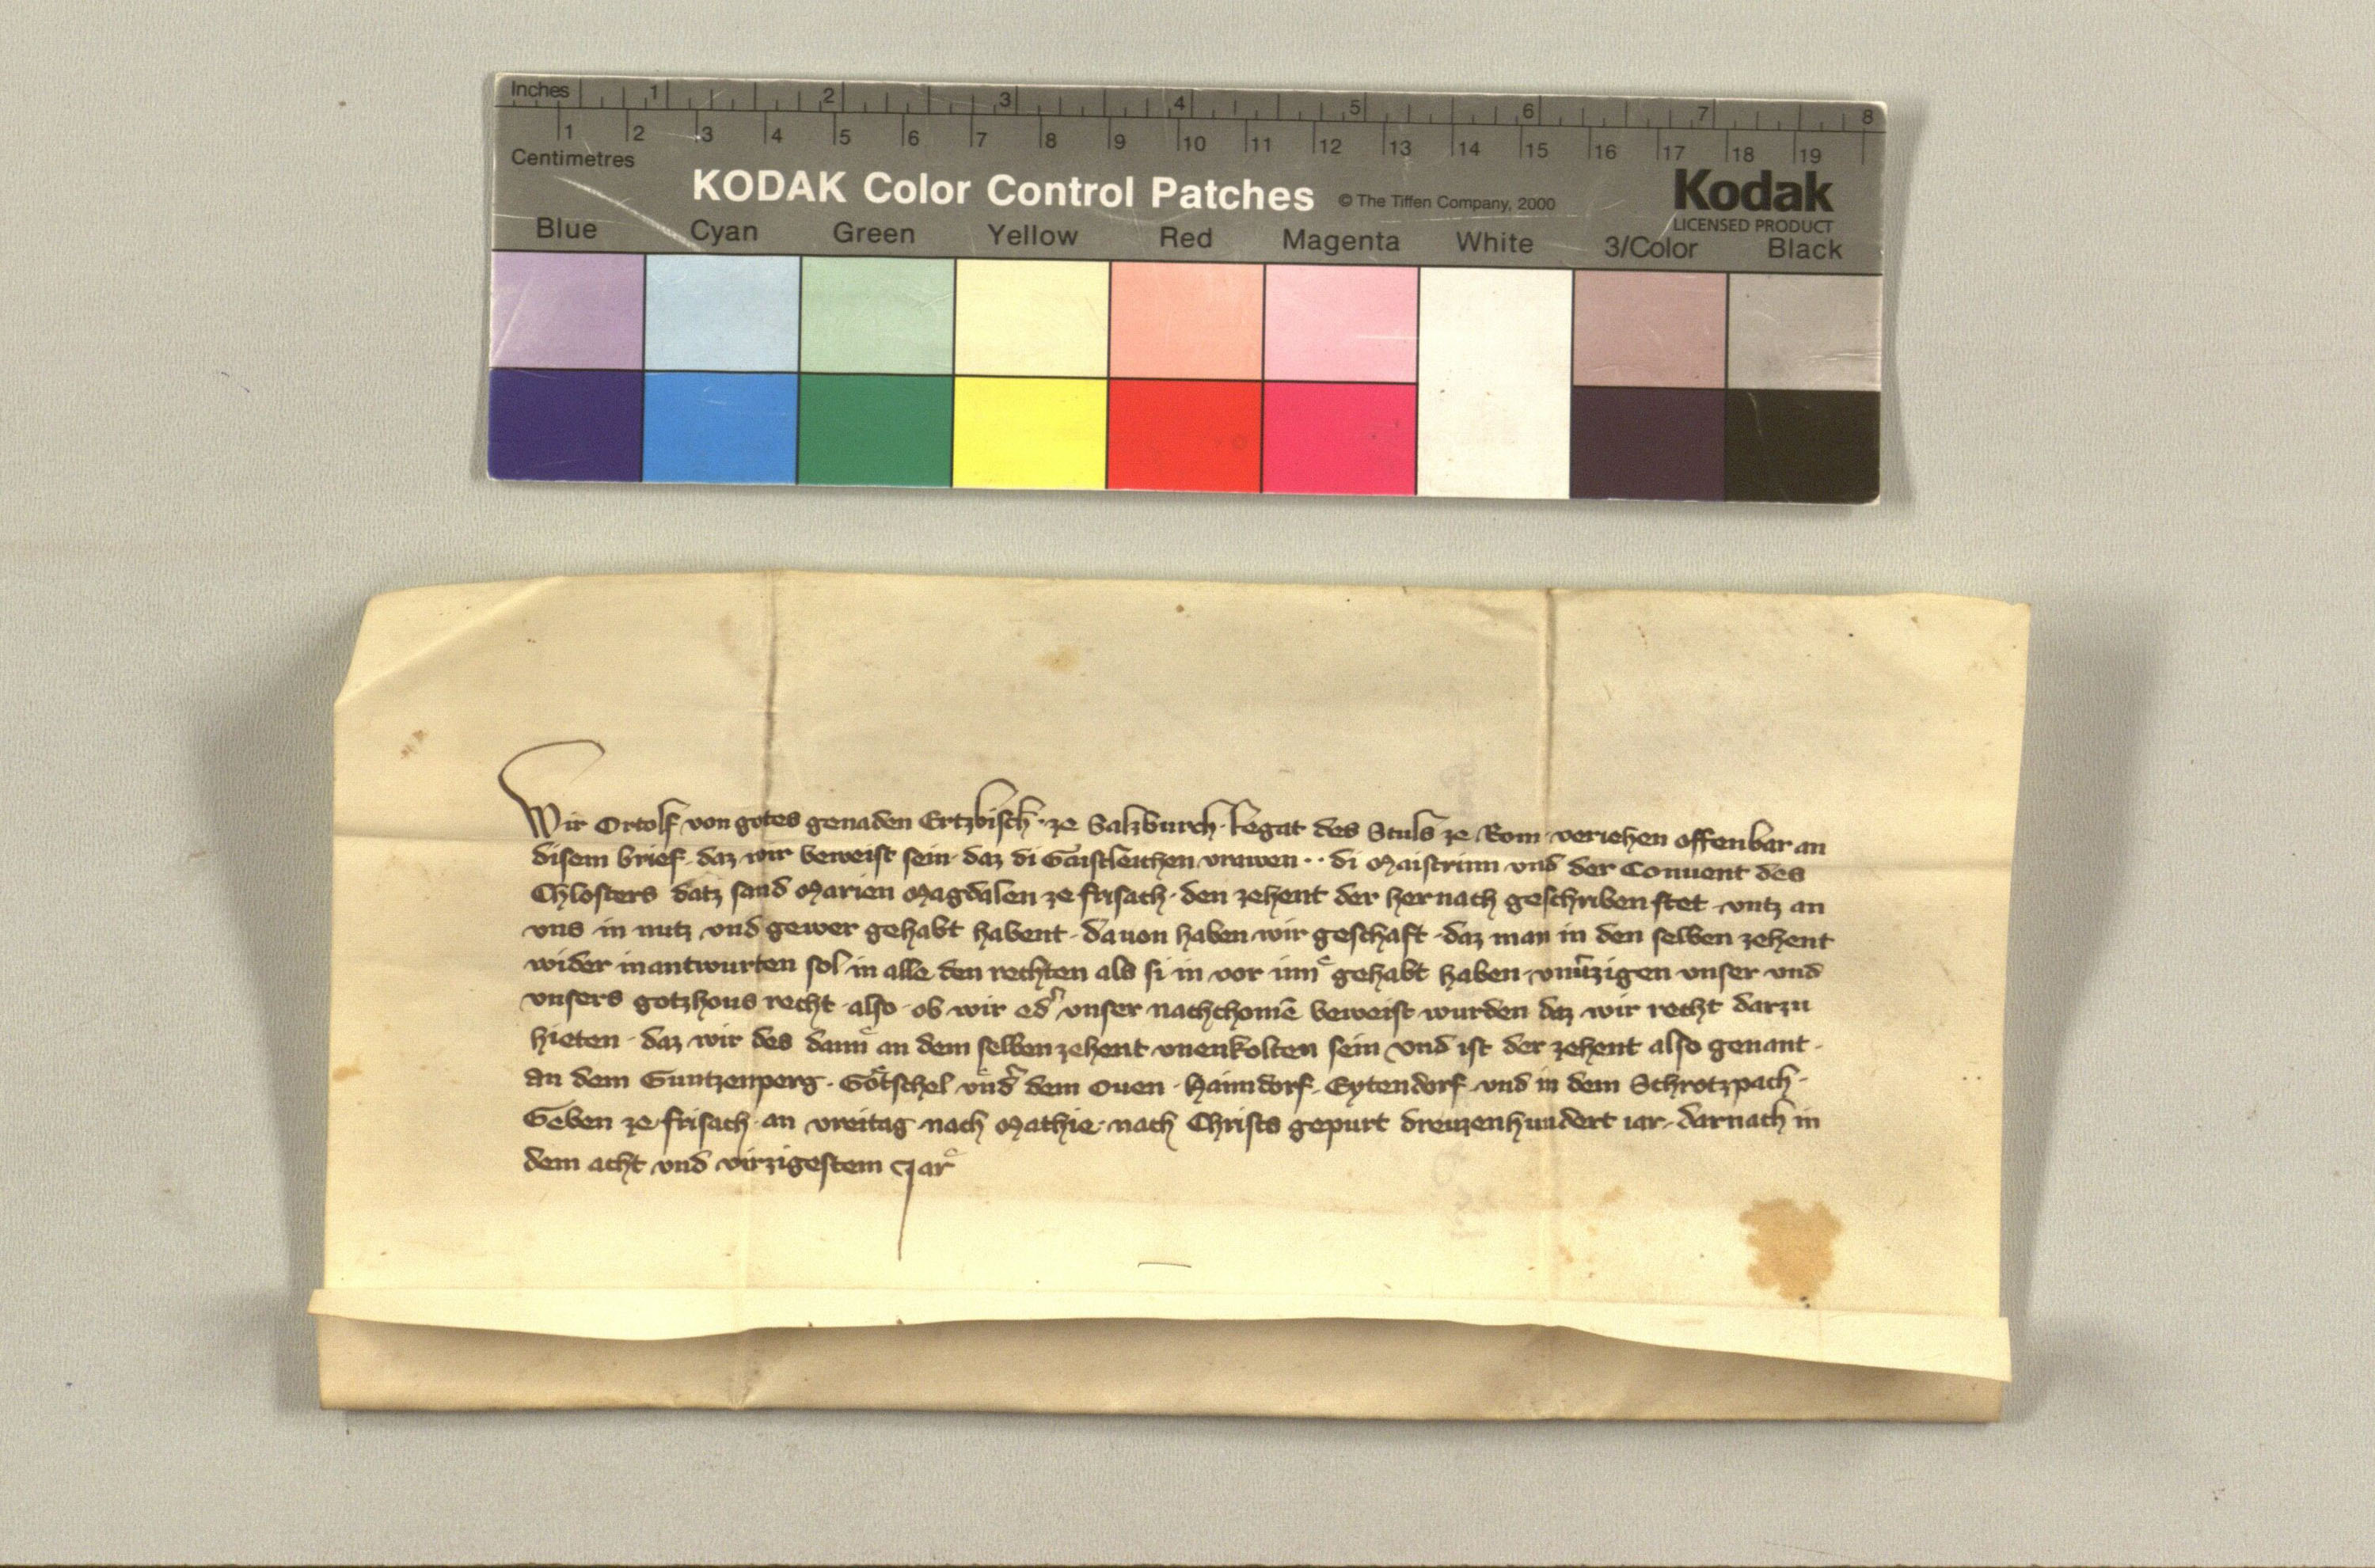 Inches 1 2 3 4 5 6 7 8
1 2 3 4 5 6 7 8 9 10 11 12 13 14 15 16 17 18 19
Centimetres
KODAK Color Control Patches © The Tiffen Company, 2000 Kodak
LICENSED PRODUCT
Blue Cyan Green Yellow Red Magenta White 3/Color Black
Wir Ortolf von gotes genaden Ertzbisch· ze Salzburch· Legat des Stuls ze Rom veriehen offenbar an
disem brief· daz wir beweist sein· daz di Gaistleichen vrawen ·· di Maistrinn vnd der Conuent des
Chlosters datz sand Marien Magdalen ze frisach· den zehent der hernach geschriben stet vntz an
vns in nutz vnd gewer gehabt habent· dauon haben wir geschaft· daz man in den selben zehent
wider inantwurten sol in alle den rechten als si in vor gehabt haben· vnser vnd
vnsers gotzhous recht· also· ob wir edˀ vnser nachchomē beweist wurden daz wir recht darzu
hieten· daz wir des dannͤ an dem selben zehent vnenkolten sein vnd ist der zehent also genant·
an dem Guntzenperg· Goͤtschel vndˀ dem Ouen· Haimdorf· Eytendorf· vnd in dem Schrotzpach·
Geben ze frisach· an vreitag nach Mathie· nach Christs gepurt dreuzenhundert iar· darnach in
dem acht vnd virzigestem Jarͤ